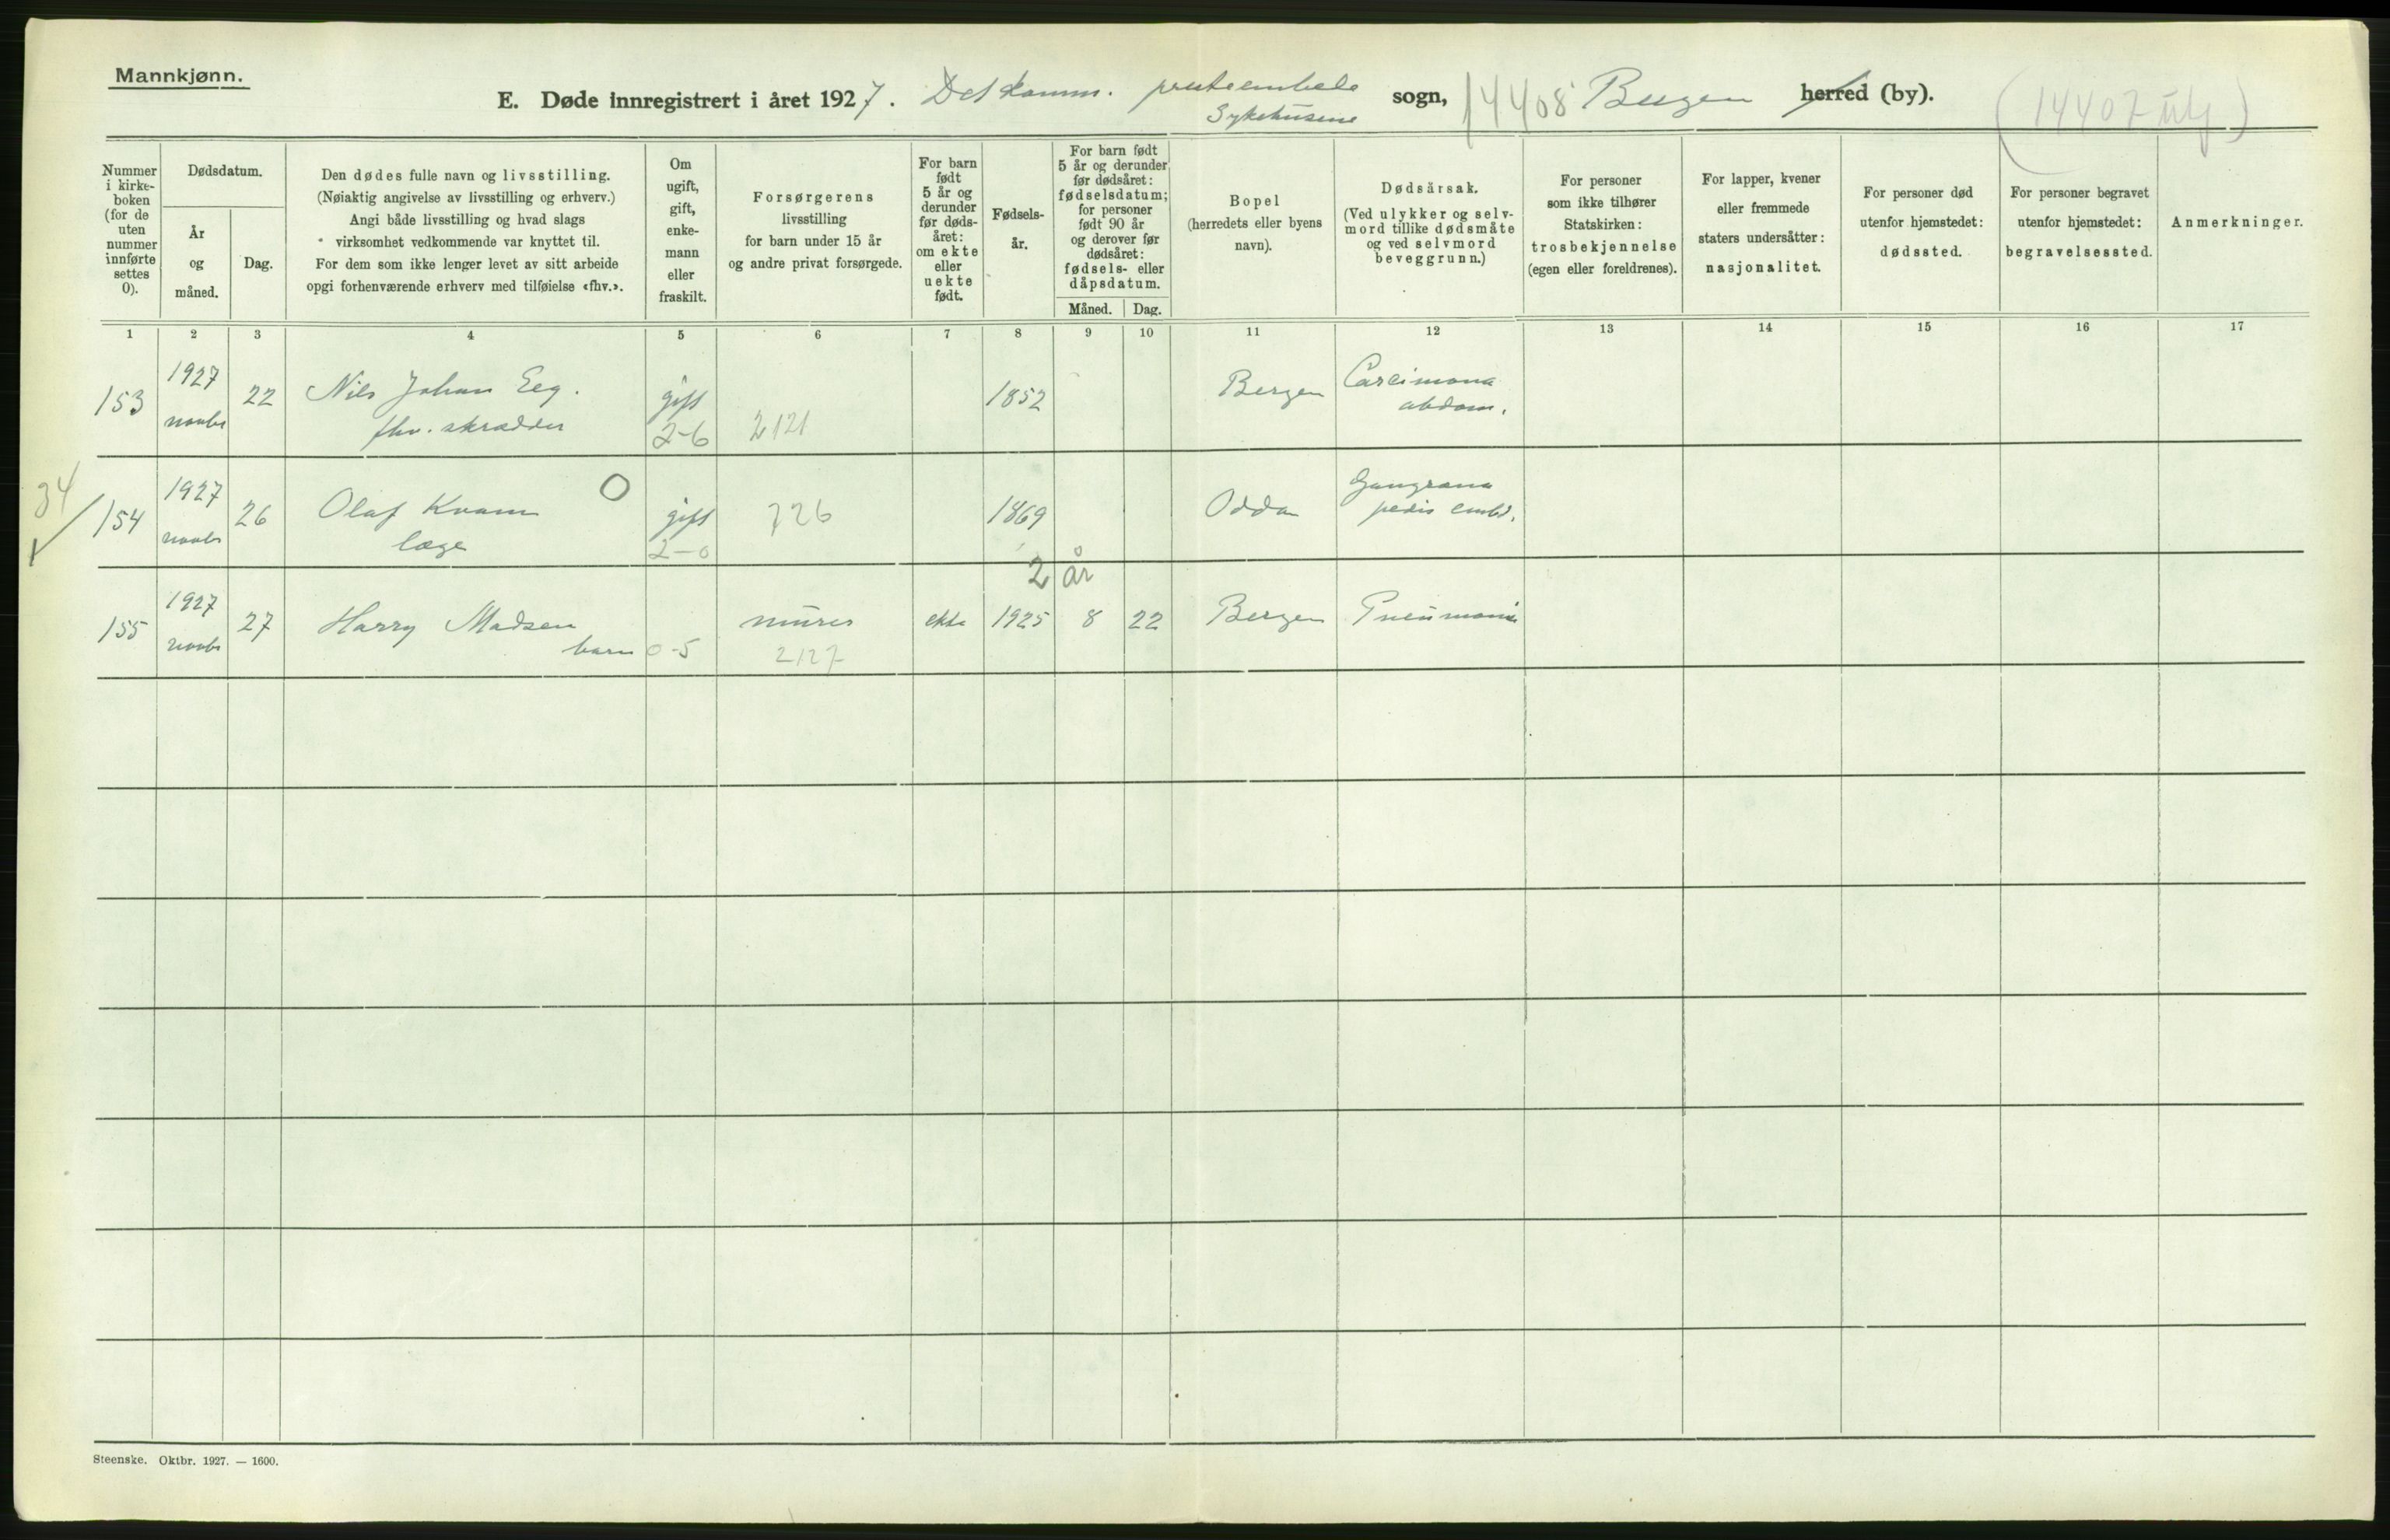 Mannkjønn.
E. Døde innregistrert i året 1927. Det komm. presteembede sogn, 14408 Bergen herred (by). (14407 utg)
Sykehusene
Nummer i kirke-boken (for de uten nummer innførte settes 0).
Dødsdatum.
År og måned.
Dag.
Den dødes fulle navn og livsstilling.
(Nøiaktig angivelse av livsstilling og erhverv.)
Angi både livsstilling og hvad slags
virksomhet vedkommende var knyttet til.
For dem som ikke lenger levet av sitt arbeide
opgi forhenværende erhverv med tilføielse «fhv.».
Om ugift, gift, enke-mann eller fraskilt.
Forsørgerens
livsstilling
for barn under 15 år
og andre privat forsørgede.
For barn født 5 år og derunder før døds-året: om ekte eller uekte født.
Fødsels-år.
For barn født
5 år og derunder
før dødsåret:
fødselsdatum;
for personer
født 90 år
og derover før
dødsåret:
fødsels- eller
dåpsdatum.
Måned. Dag.
Bopel
(herredets eller byens
navn).
Dødsårsak.
(Ved ulykker og selv-
mord tillike dødsmåte
og ved selvmord
beveggrunn.)
For personer
som ikke tilhører
Statskirken:
trosbekjennelse
(egen eller foreldrenes).
For lapper, kvener
eller fremmede
staters undersåtter:
nasjonalitet.
For personer død
utenfor hjemstedet:
dødssted.
For personer begravet
utenfor hjemstedet:
begravelsessted.
Anmerkninger.
1 2 3 4 5 6 7 8 9 10 11 12 13 14 15 16 17
153 1927 novbr 22 Nils Johan Eeg. gift 1852 Bergen Carcimona
fhv. skrædder 2-6 2121 abdom.
34
154 1927 novbr 26 Olaf Kvam O gift 726 1869 Odda Gangræna
læge 2-0 pedis embol.
2 år
155 1927 novbr 27 Harry Madsen murer ekte 1925 8 22 Bergen Pneumoni
barn 0-5 2127
Steenske. Oktbr. 1927. — 1600.